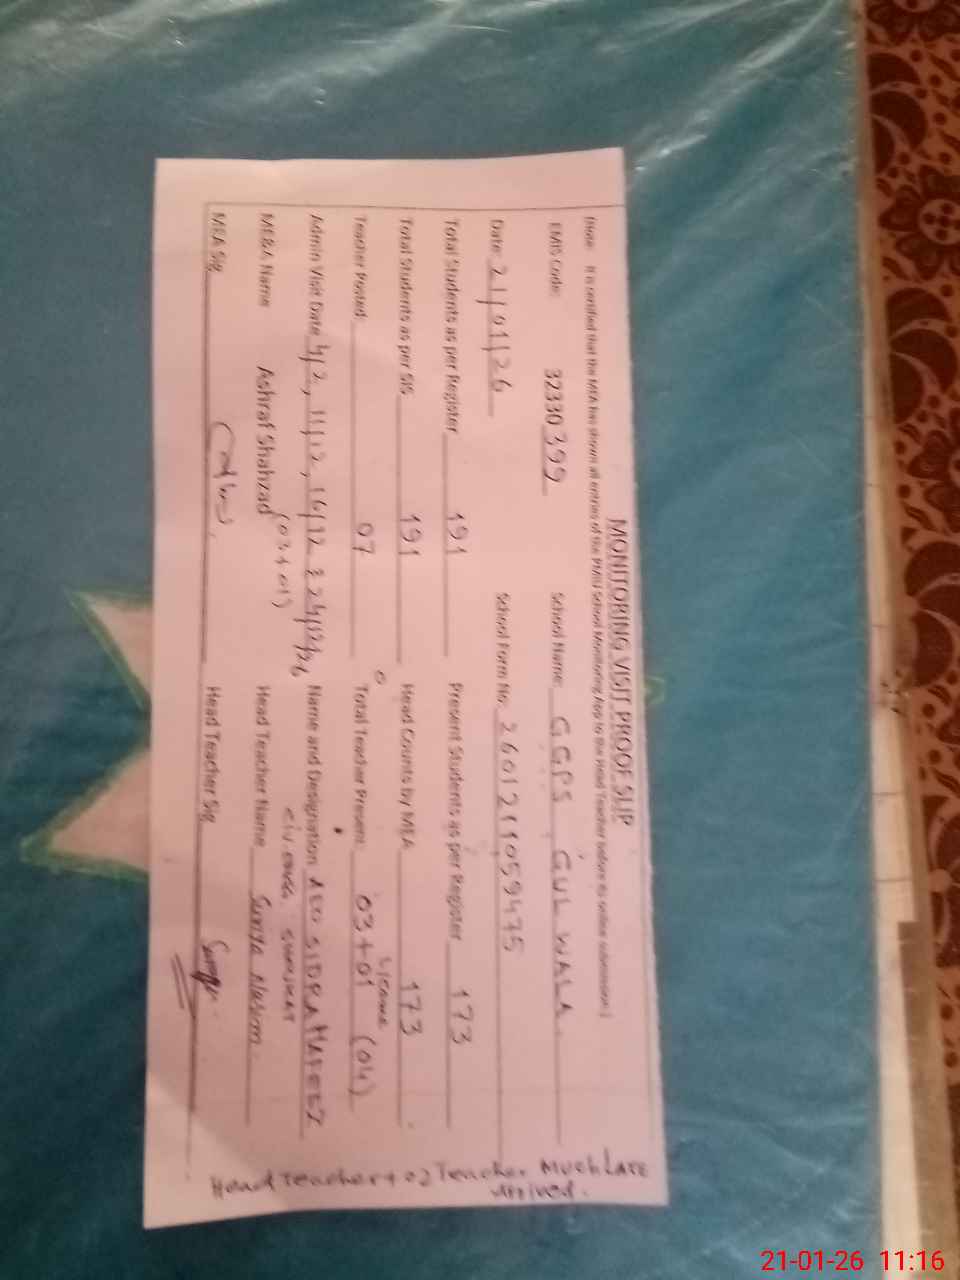 MONITORING VISIT PROOF SLIP
(Note: It is certified that the MEA has shown all entries of the PMIU School Monitoring App to the Head Teacher before its online submission)
EMIS Code: 32330399 School Name: GGPS GUL WALA
Date: 21/01/26 School Form No. 26012111059475
Total Students as per Register 191 Present Students as per Register 173
Total Students as per SIS 191 Head Counts by MEA 173
Teacher Posted: 07 Total Teacher Present: 03+01 (04)
Admin Visit Date 11/12, 16/12 & 24/12/26 Name and Designation AEO SIDRA HAFEEZ
(03+01)
ME&A Name Ashraf Shahzad Head Teacher Name
MEA Sig Head Teacher Sig
Head Teacher + 02 Teacher Much Late
arrived.
21-01-26 11:16